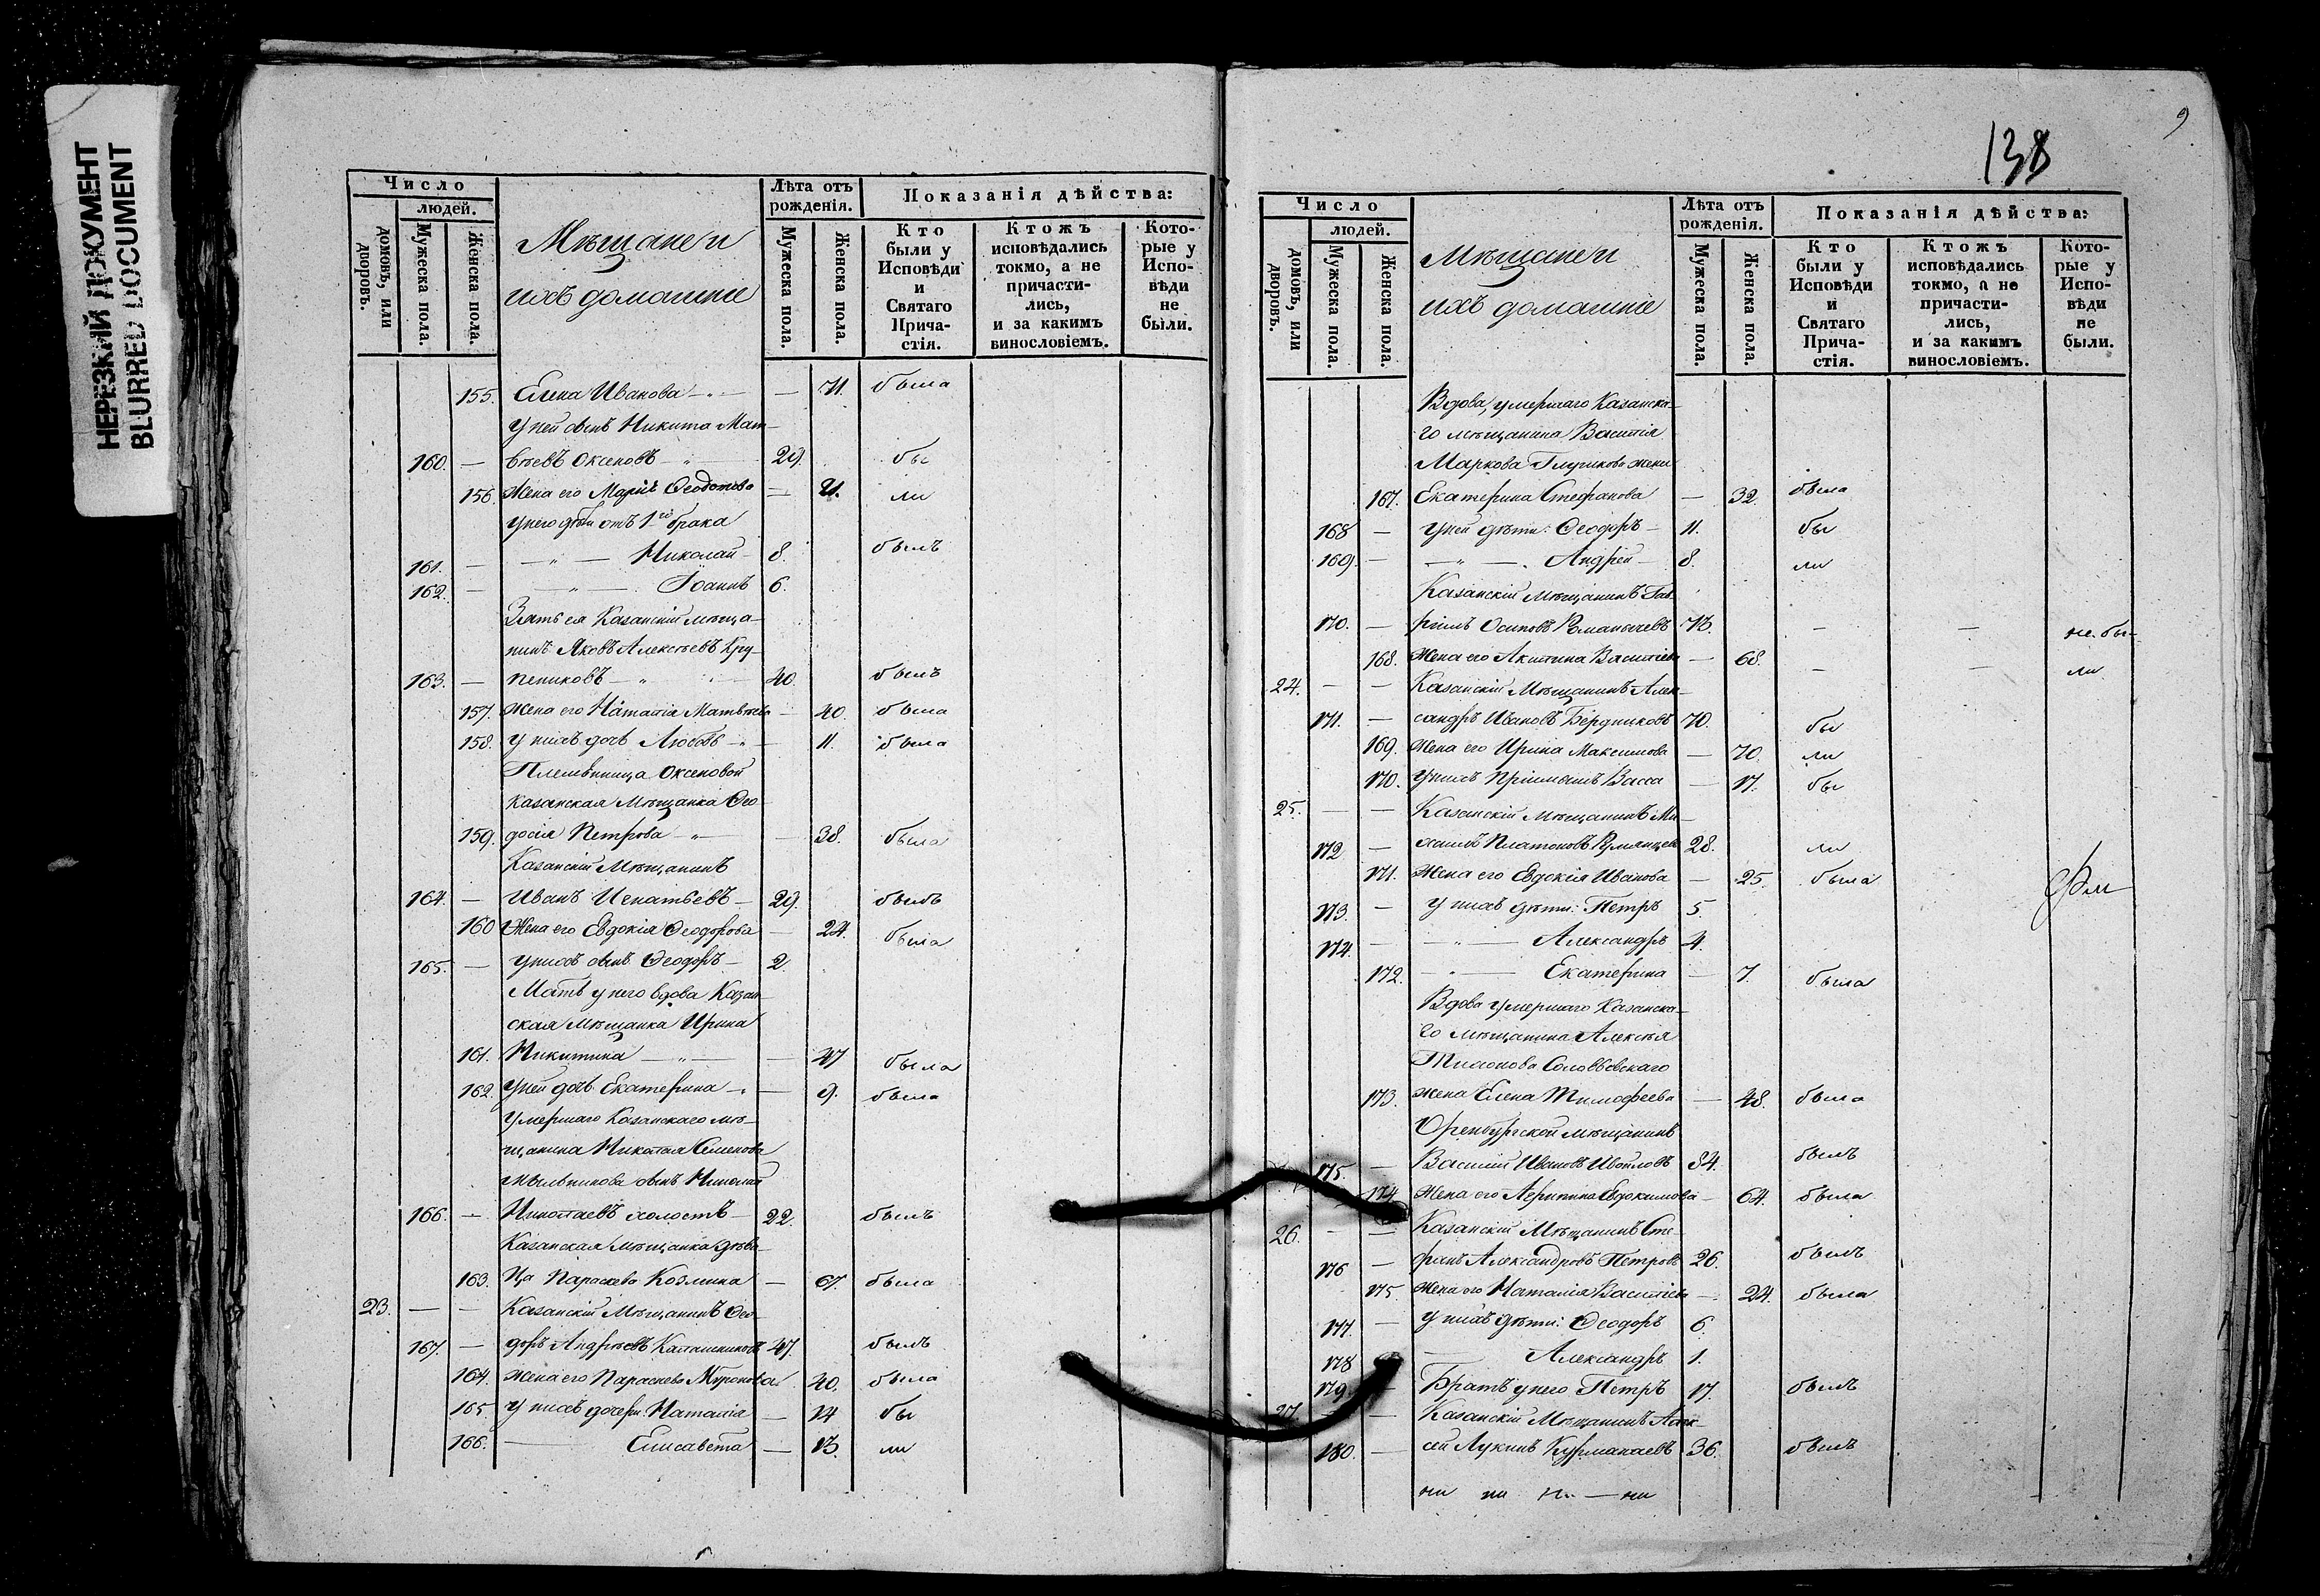 НЕРЕЗКИЙ ДОКУМЕНТ
BLURRED DOCUMENT
Число
людей.
домовъ, или дворовъ.
Мужеска пола.
Женска пола.
Мѣщане и
ихъ домашніе
Лѣта отъ рожденія.
Мужеска пола.
Женска пола.
Показанія дѣйства:
Кто были у Исповѣди и Святаго Прича-стія.
Ктожъ исповѣдались токмо, а не причасти-лись, и за какимъ винословіемъ.
Кото-рые у Испо-вѣди не были.
155. Елена Иванова — 71. была
у ней сынъ Никита Мат-
160. — вѣевъ Оксеновъ — 29. бы
156. Жена его Марія Ѳеодотова — 21. ли
у него дѣти отъ 1го брака
161. — Николай 8. былъ
162. — Іоаннъ 6.
Зять ея Казанскій мѣща-
нинъ Яковъ Алексѣевъ Кру-
163. — пениковъ — 40. былъ
157. Жена его Наталія Матвѣева — 40. была
158. у нихъ дочь Любовь — 11. была
Племянница Оксеновой
Казанская Мѣщанка Ѳео-
159. досія Петрова — 38. была
Казанскій Мѣщанинъ
164. — Иванъ Игнатьевъ — 29. былъ
160 Жена его Евдокія Ѳеодорова — 24. была
165. — у нихъ сынъ Ѳеодоръ — 2.
Мать у него вдова Казан-
ская Мѣщанка Ирина
161. Никитина — 47 была
162. у ней дочь Екатерина — 9. была
умершаго Казанскаго мѣ-
щанина Николая Семенова
Мыльникова сынъ Николай
166. — Николаевъ холостъ — 22. былъ
Казанская Мѣщанка дѣви-
163. ца Параскева Козмина — 67. была
23. — — Казанскій Мѣщанинъ Ѳео-
167. — доръ Андреевъ Калашниковъ 47. былъ
164. Жена его Параскева Миронова 40. была
165 у нихъ дочери: Наталія — 14 бы
166. — Елисавета — 13. ли
138
9
Число
людей.
домовъ, или дворовъ.
Мужеска пола.
Женска пола.
Мѣщане и
ихъ домашніе
Лѣта отъ рожденія.
Мужеска пола.
Женска пола.
Показанія дѣйства:
Кто были у Исповѣди и Святаго Прича-стія.
Ктожъ исповѣдались токмо, а не причасти-лись, и за какимъ винословіемъ.
Кото-рые у Испо-вѣди не были.
Вдова, умершаго Казанска-
го мѣщанина Василія
Маркова жена
167. Екатерина Стефанова — 32. была
168 — у ней дѣти: Ѳеодоръ — 11. бы
169. — Андрей — 8. ли
Казанскій Мѣщанинъ Гав-
170. — ріилъ Осиповъ Романычевъ 73. — — не бы-
168. Жена его Акилина Василіева — 68. — — ли
24. — — Казанскій Мѣщанинъ Алек-
171. — сандръ Ивановъ Бердниковъ 70. бы
169. Жена его Ирина Максимова — 70. ли
170. у нихъ пріимышъ Васса — 17. бы
25. — — Казанскій Мѣщанинъ Ми-
172 — хаилъ Платоновъ Румянцевъ 28. ли
171. Жена его Евдокія Иванова — 25. была
173. — у нихъ дѣти: Петръ 5.
174. — Александръ 4.
172. — Екатерина — 7. была
Вдова умершаго Казанска-
го мѣщанина Алексѣя
Соловьевскаго
173. жена Елена Тимофеева — 48. была
Оренбургской мѣщанинъ
175. — Василій Ивановъ 84. былъ
174 Жена его Агрипина Евдокимова — 64. была
26. — — Казанскій Мѣщанинъ Сте-
176 — фанъ Александровъ Петровъ 26. былъ
175 Жена его Наталія Василіева — 24. была
177. — у нихъ дѣти: Ѳеодоръ 6.
178 — Александръ 1.
179. — Братъ у него Петръ 17. былъ
27. — — Казанскій Мѣщанинъ Алек-
180. — сей Лукинъ Курманаевъ 36. былъ